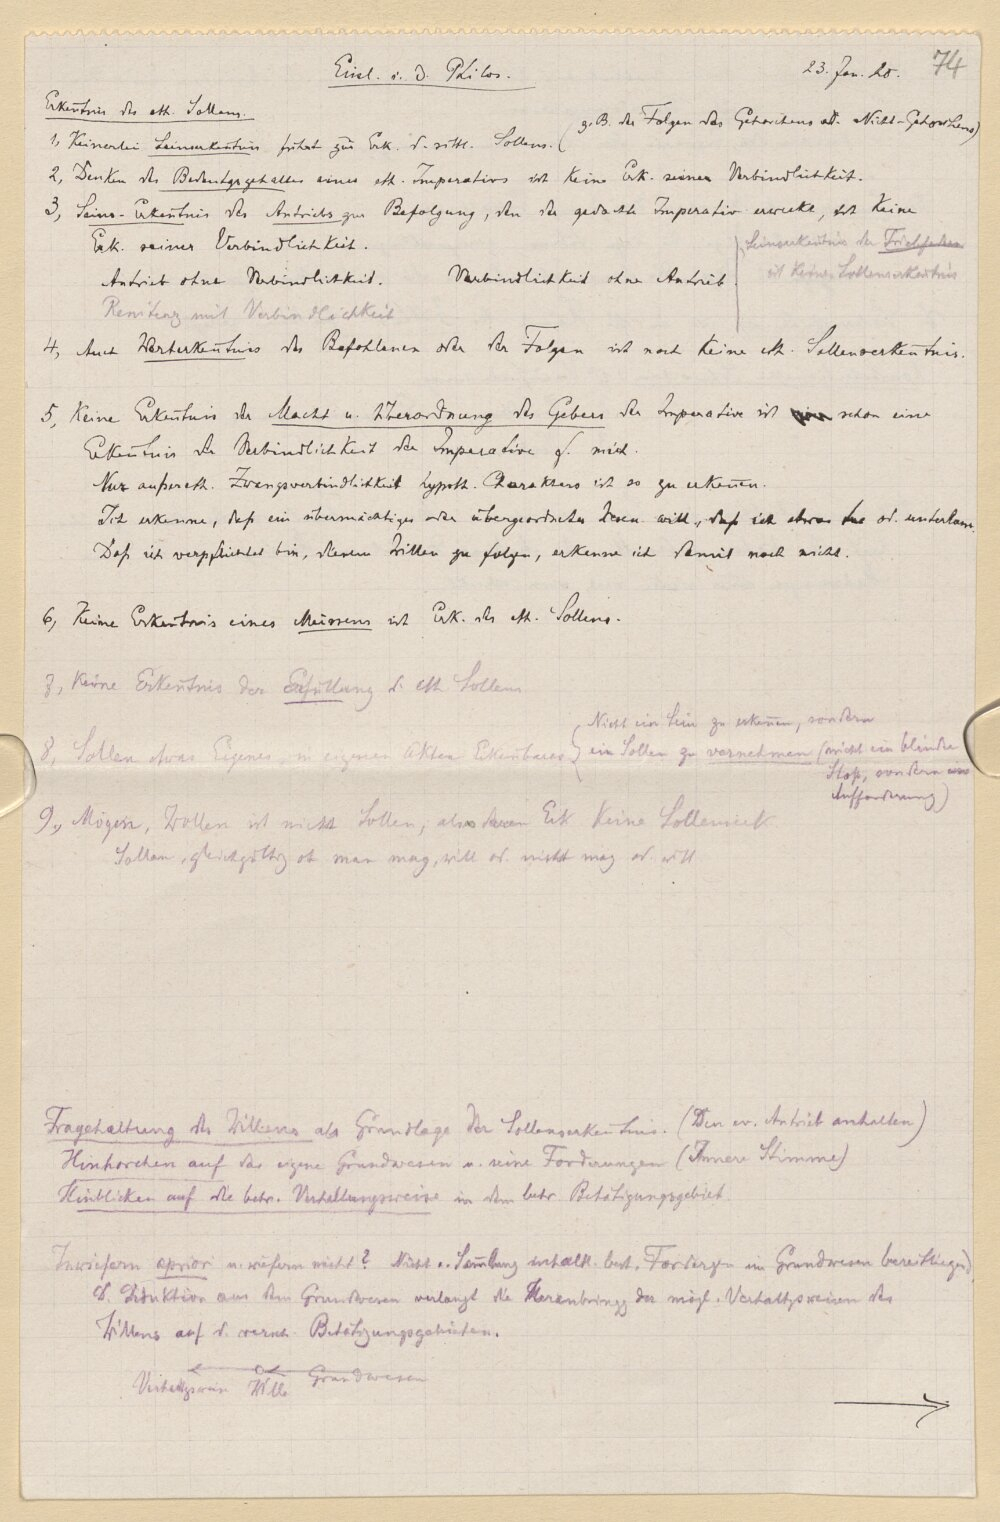 Einl. i. d. Philos.
23. Jan. 20.
74
Erkentnis des eth. Sollens.
1, Keinerlei Seinserkentnis führt zur Erk. d. sittl. Sollens. (z. B. der Folgen des Gehorchens od. Nicht-Gehorchens)
2, Denken des Bedeutgsgehaltes eines eth. Imperativs ist keine Erk. seiner Verbindlichkeit.
3, Seins-Erkentnis des Antriebs zur Befolgung, den der gedachte Imperativ erweckt, ist keine
Erk. seiner Verbindlichkeit.
Antrieb ohne Verbindlichkeit. Verbindlichkeit ohne Antrieb.
Seinserkentnis der Triebfedern
ist keine Sollenserkentnis
Renitenz mit Verbindlichkeit
4, Auch Werterkentnis des Befohlenen oder der Folgen ist noch keine eth. Sollenserkentnis.
5, Keine Erkentnis der Macht u. Überordnung des Gebers der Imperative ist schon eine
Erkentnis der Verbindlichkeit der Imperative f. mich.
Nur außereth. Zwangsverbindlichkeit hypoth. Charakters ist so zu erkennen.
Ich erkenne, daß ein übermächtiges oder übergeordnetes Wesen will, daß ich etwas tue od. unterlasse.
Daß ich verpflichtet bin, diesem Willen zu folgen, erkenne ich damit noch nicht.
6, Keine Erkentnis eines Müssens ist Erk. des eth. Sollens.
7, Keine Erkentnis der Erfüllung d. eth Sollens
8, Sollen etwas Eigenes, in eigenen Akten Erkenbares
Nicht ein Sein zu erkennen, sondern
ein Sollen zu vernehmen (nicht ein blinder
Stoß, sondern eine
Aufforderung)
9., Mögen, Wollen ist nicht Sollen, also deren Erk keine Sollenserk
Sollen, gleichgültig ob man mag, will od. nicht mag od. will
Fragehaltung des Willens als Grundlage der Sollenserkentnis. (Den ev. Antrieb anhalten)
Hinhorchen auf das eigene Grundwesen u. seine Forderungen (Innere Stimme)
Hinblicken auf die betr. Verhaltungsweise in dem betr. Betätigungsgebiet.
Inwiefern apriori u. wiefern nicht? Nicht e. Samlung inhaltl. best. Fordergen im Grundwesen bereitliegend
D. Deduktion aus dem Grundwesen verlangt die Heranbringg der mögl. Verhaltgsweisen des
Willens auf d. versch. Betätigungsgebieten.
Verhaltgsweise Wille Grundwesen